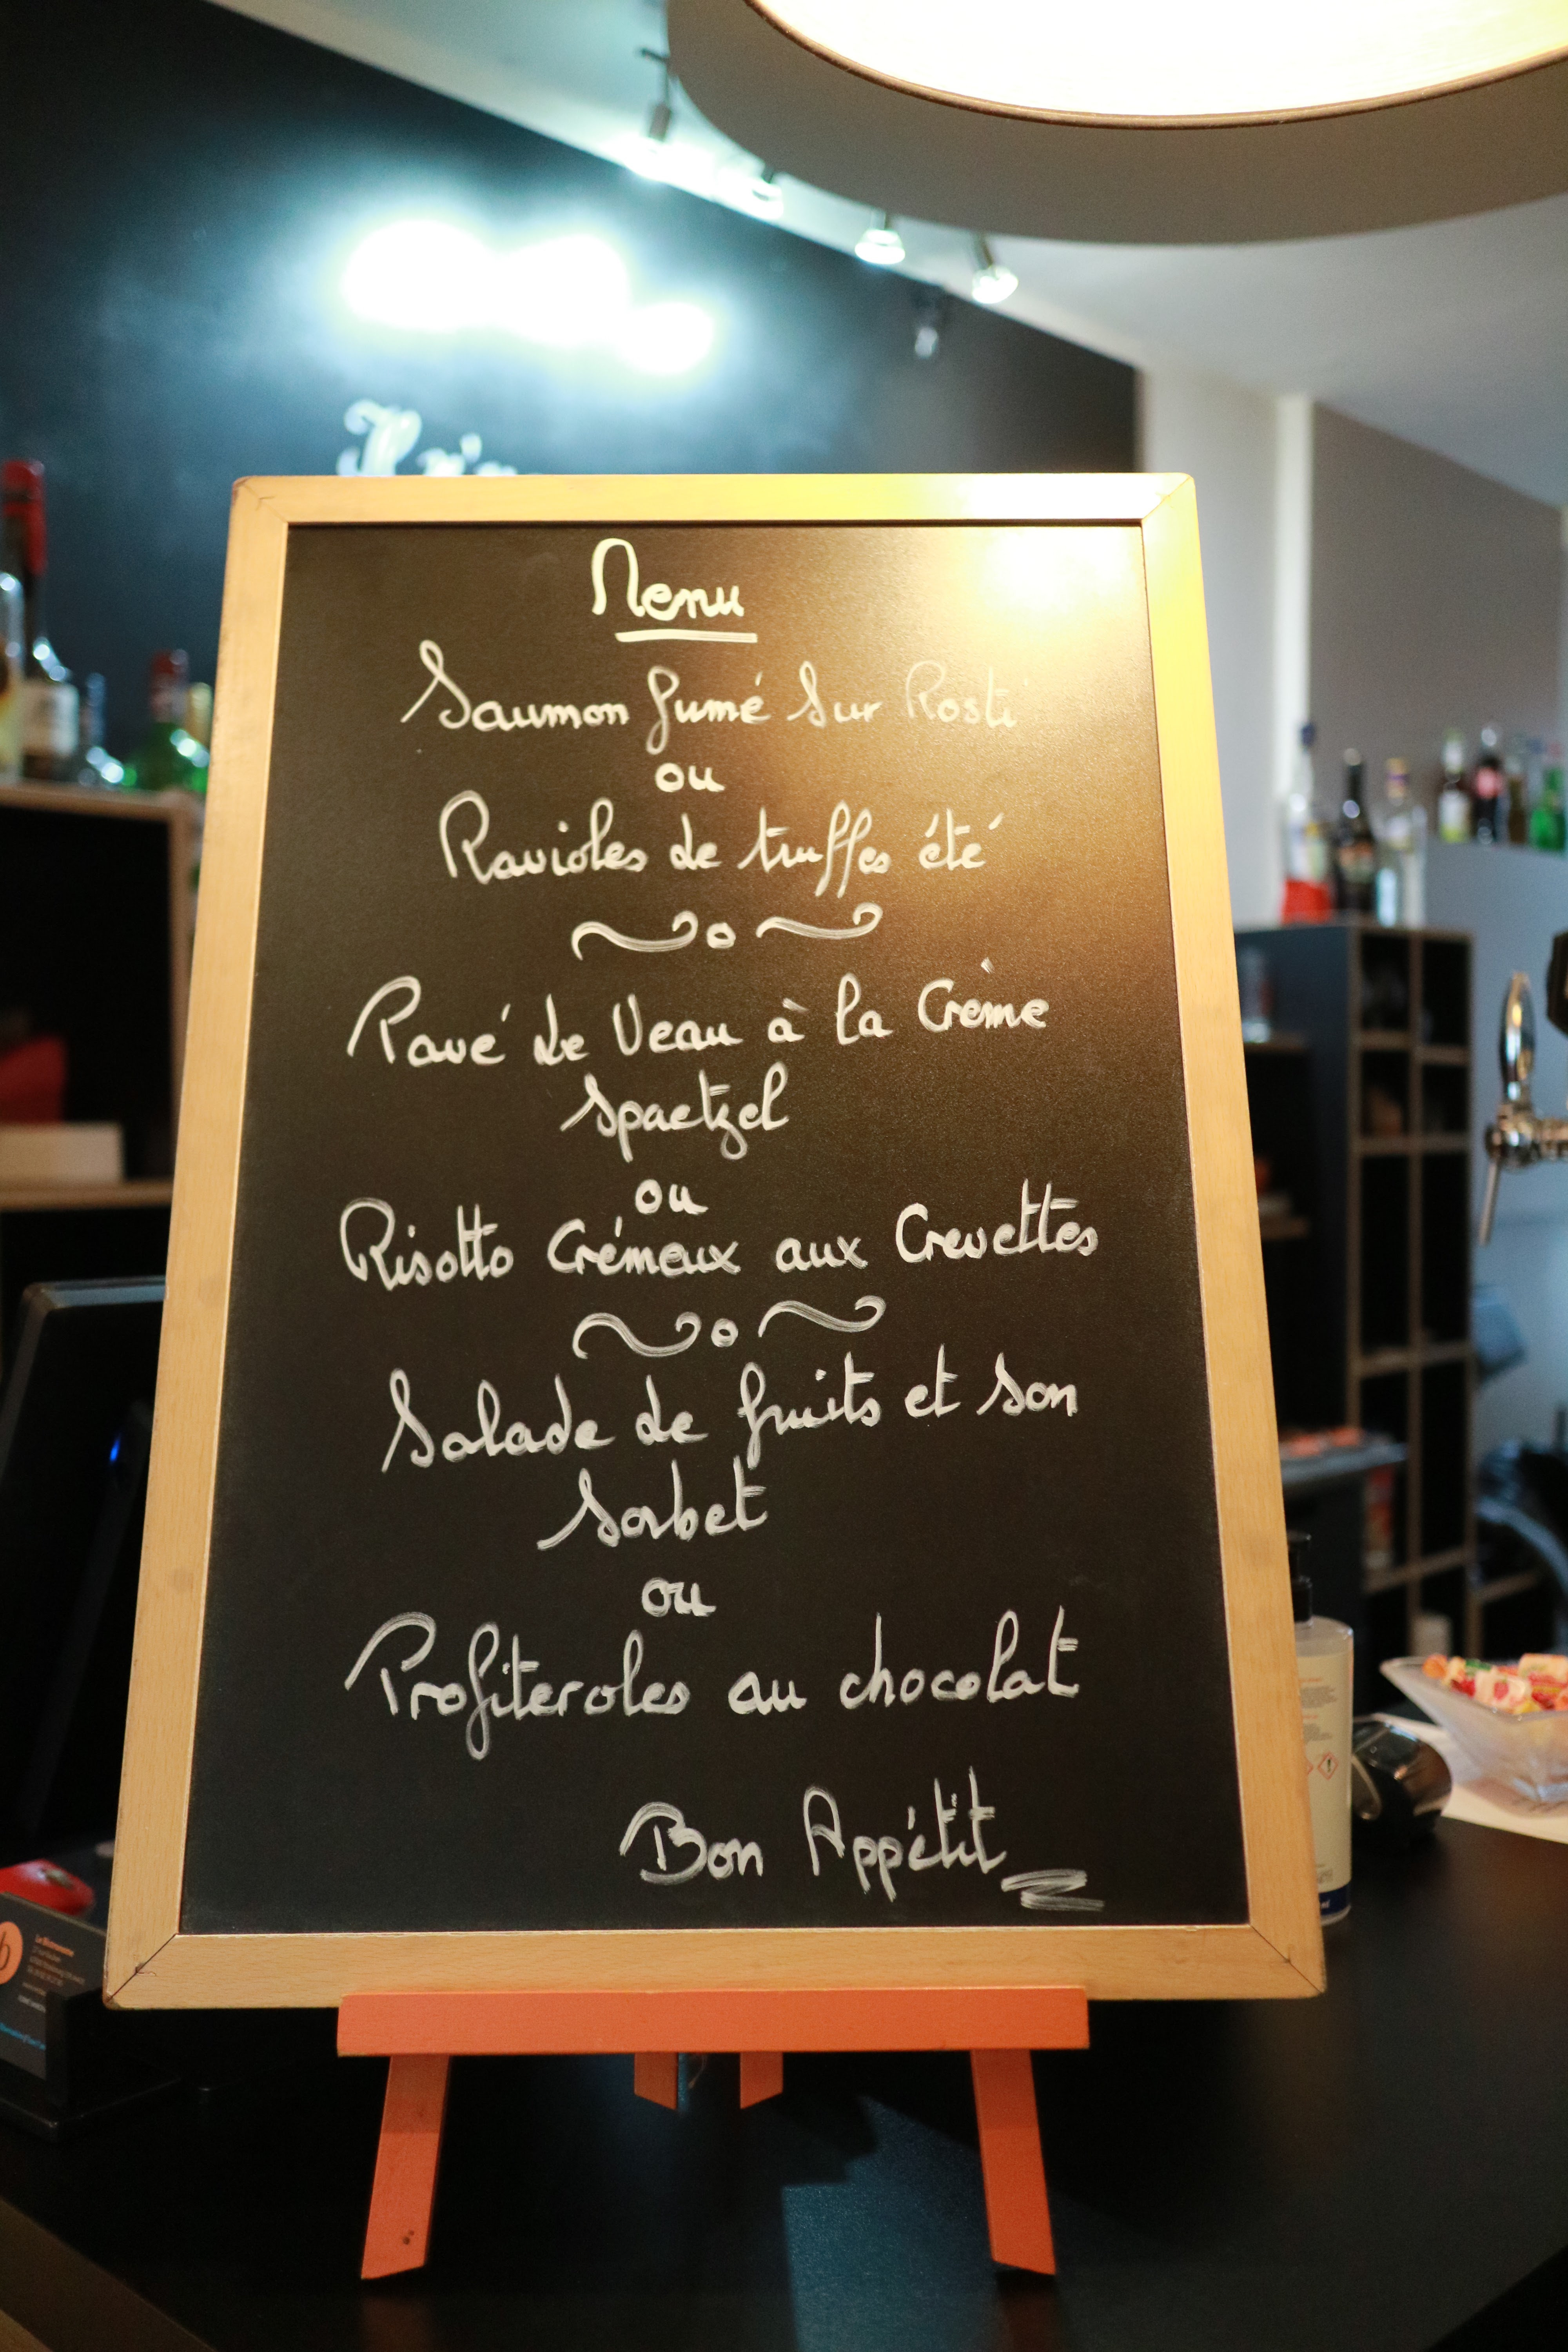 Menu
Saumon fumé sur Rosti
ou
Ravioles de truffes été
Pavé de Veau à la Crème
Spaetzel
ou
Risotto Crémeux aux Crevettes
Salade de fruits et son
Sorbet
ou
Profiteroles au chocolat
Bon Appétit